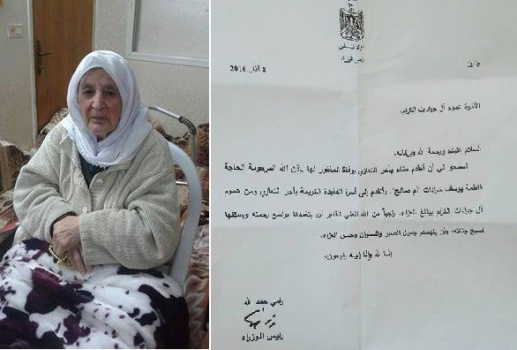 دولة فلسطين
رئيس الوزراء
8 آذار 2016
الأخوة عموم آل جرادات الكرام
السلام عليكم ورحمة الله وبركاته،
اسمحو لي أن أتقدم منكم بأحر التعازي بوفاة المغفور لها بإذن الله المرحومة الحاجة
فاطمة يوسف جرادات "أم صالح"، وأتقدم إلى أسرة الفقيدة الكريمة بأحر التعازي ومن عموم
آل جرادات الكرام ببالغ العزاء، راجياً من الله العلي القدير أن يتغمدها بواسع رحمته ويسكنها
فسيح جناته، وأن يلهمكم جميل الصبر والسلوان وحسن العزاء.
إنا لله وإنا إليه راجعون،
رامي حمد الله
رئيس الوزراء